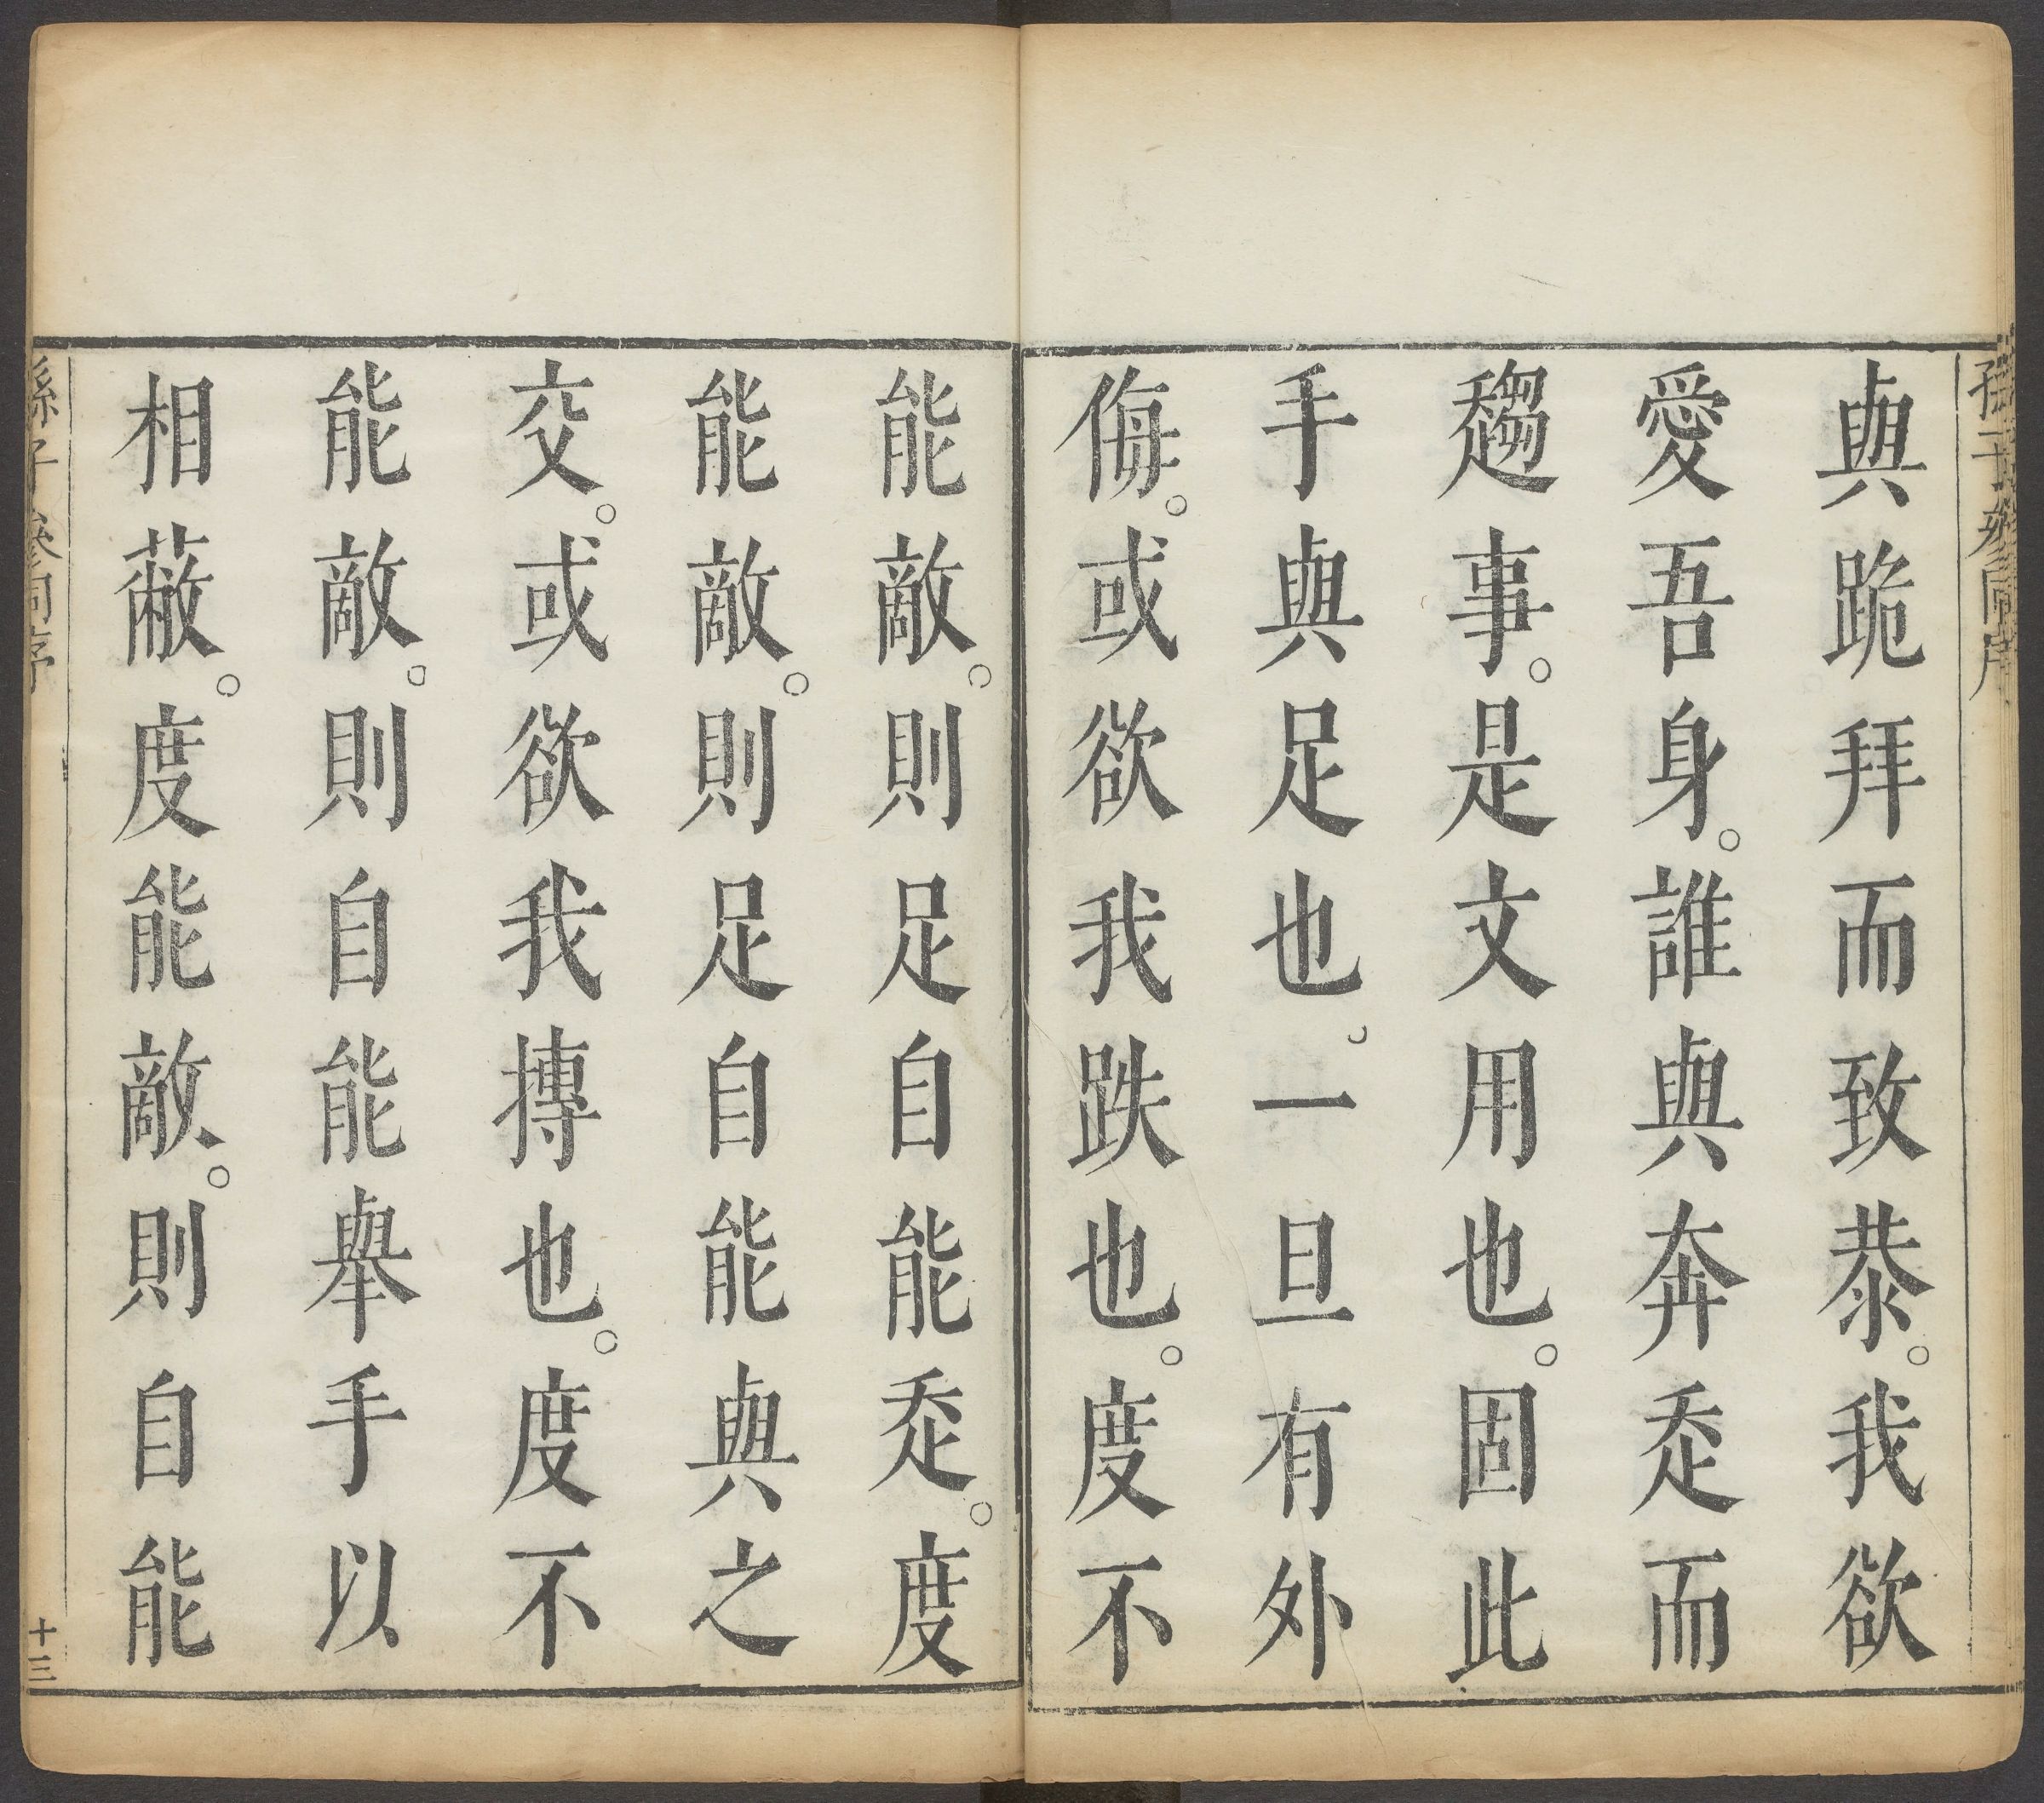 與跪拜而致恭。我欲
愛吾身。誰與奔走而
趨事。是文用也。固此
手與足也。一旦有外
侮。或欲我跌也。度不
能敵。則足自能走。度
能敵。則足自能與之
交。或欲我摶也。度不
能敵。則自能舉手以
相蔽。度能敵。則自能
孫子參同序
十三